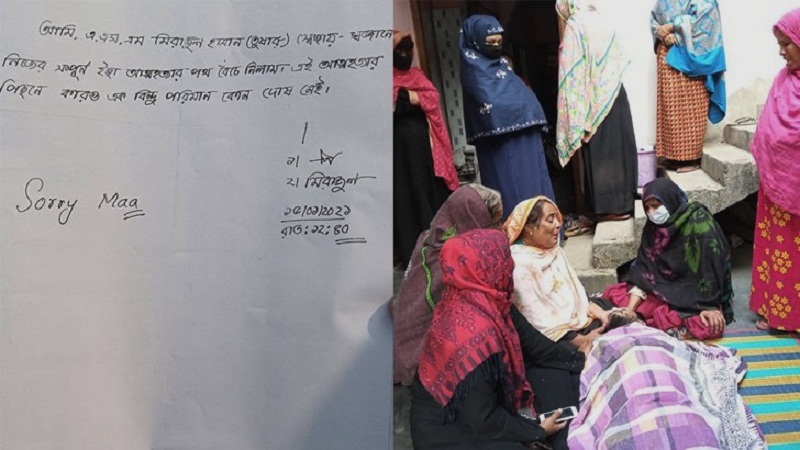 আমি, এ.এস.এম মিরাজুল হাসান (তুষার) স্বেচ্ছায়-স্বজ্ঞানে
নিজের সম্পূর্ন ইচ্ছা আত্মহত্যার পথ বেঁচে নিলাম। এই আত্মহত্যার
পিছনে কারও এক বিন্দু পরিমান কোন দোষ নেই।
১।
২। মিরাজুল
Sorry Maa
রাত: ১২:৪০